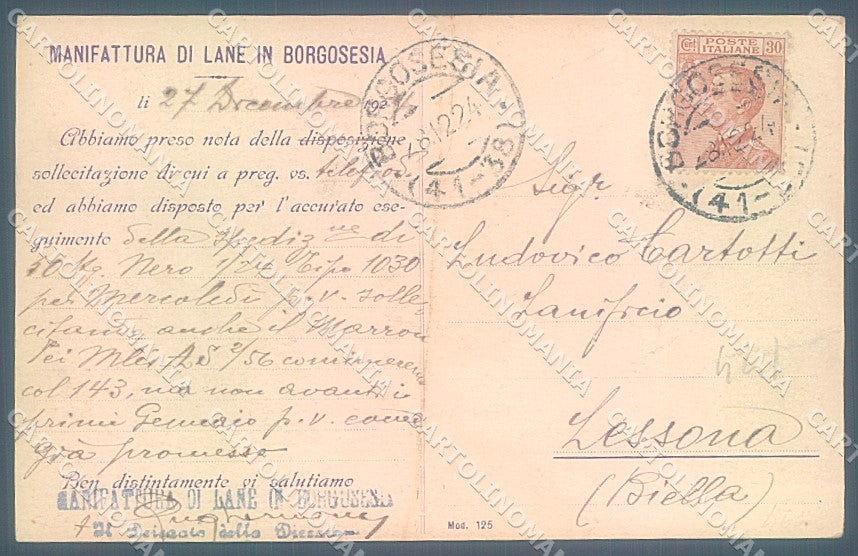 MANIFATTURA DI LANE IN BORGOSESIA
li 27 Dicembre 192
Abbiamo preso nota della disposizione
sollecitazione di cui a preg. vs. telefon.
ed abbiamo disposto per l'accurato ese-
guimento della spediz.ne di
Kg. Nero 1/24 Tipo 1030
per Mercoledì p.v. solle
citando anche il Marron
2/56
col 143, ma non avanti i
primi Gennaio p.v. come
già promesso
Ben distintamente vi salutiamo
MANIFATTURA DI LANE IN BORGOSESIA
Il Delegato della Direzione
Mod. 125
BORGOSESIA
28.12.24
(41-38)
POSTE
ITALIANE
Cent 30
BORGOSESIA
28.12.24
(41-
Sigr.
Ludovico Cartotti
Lanificio
Lessona
(Biella)
CARTOLINOMANIA